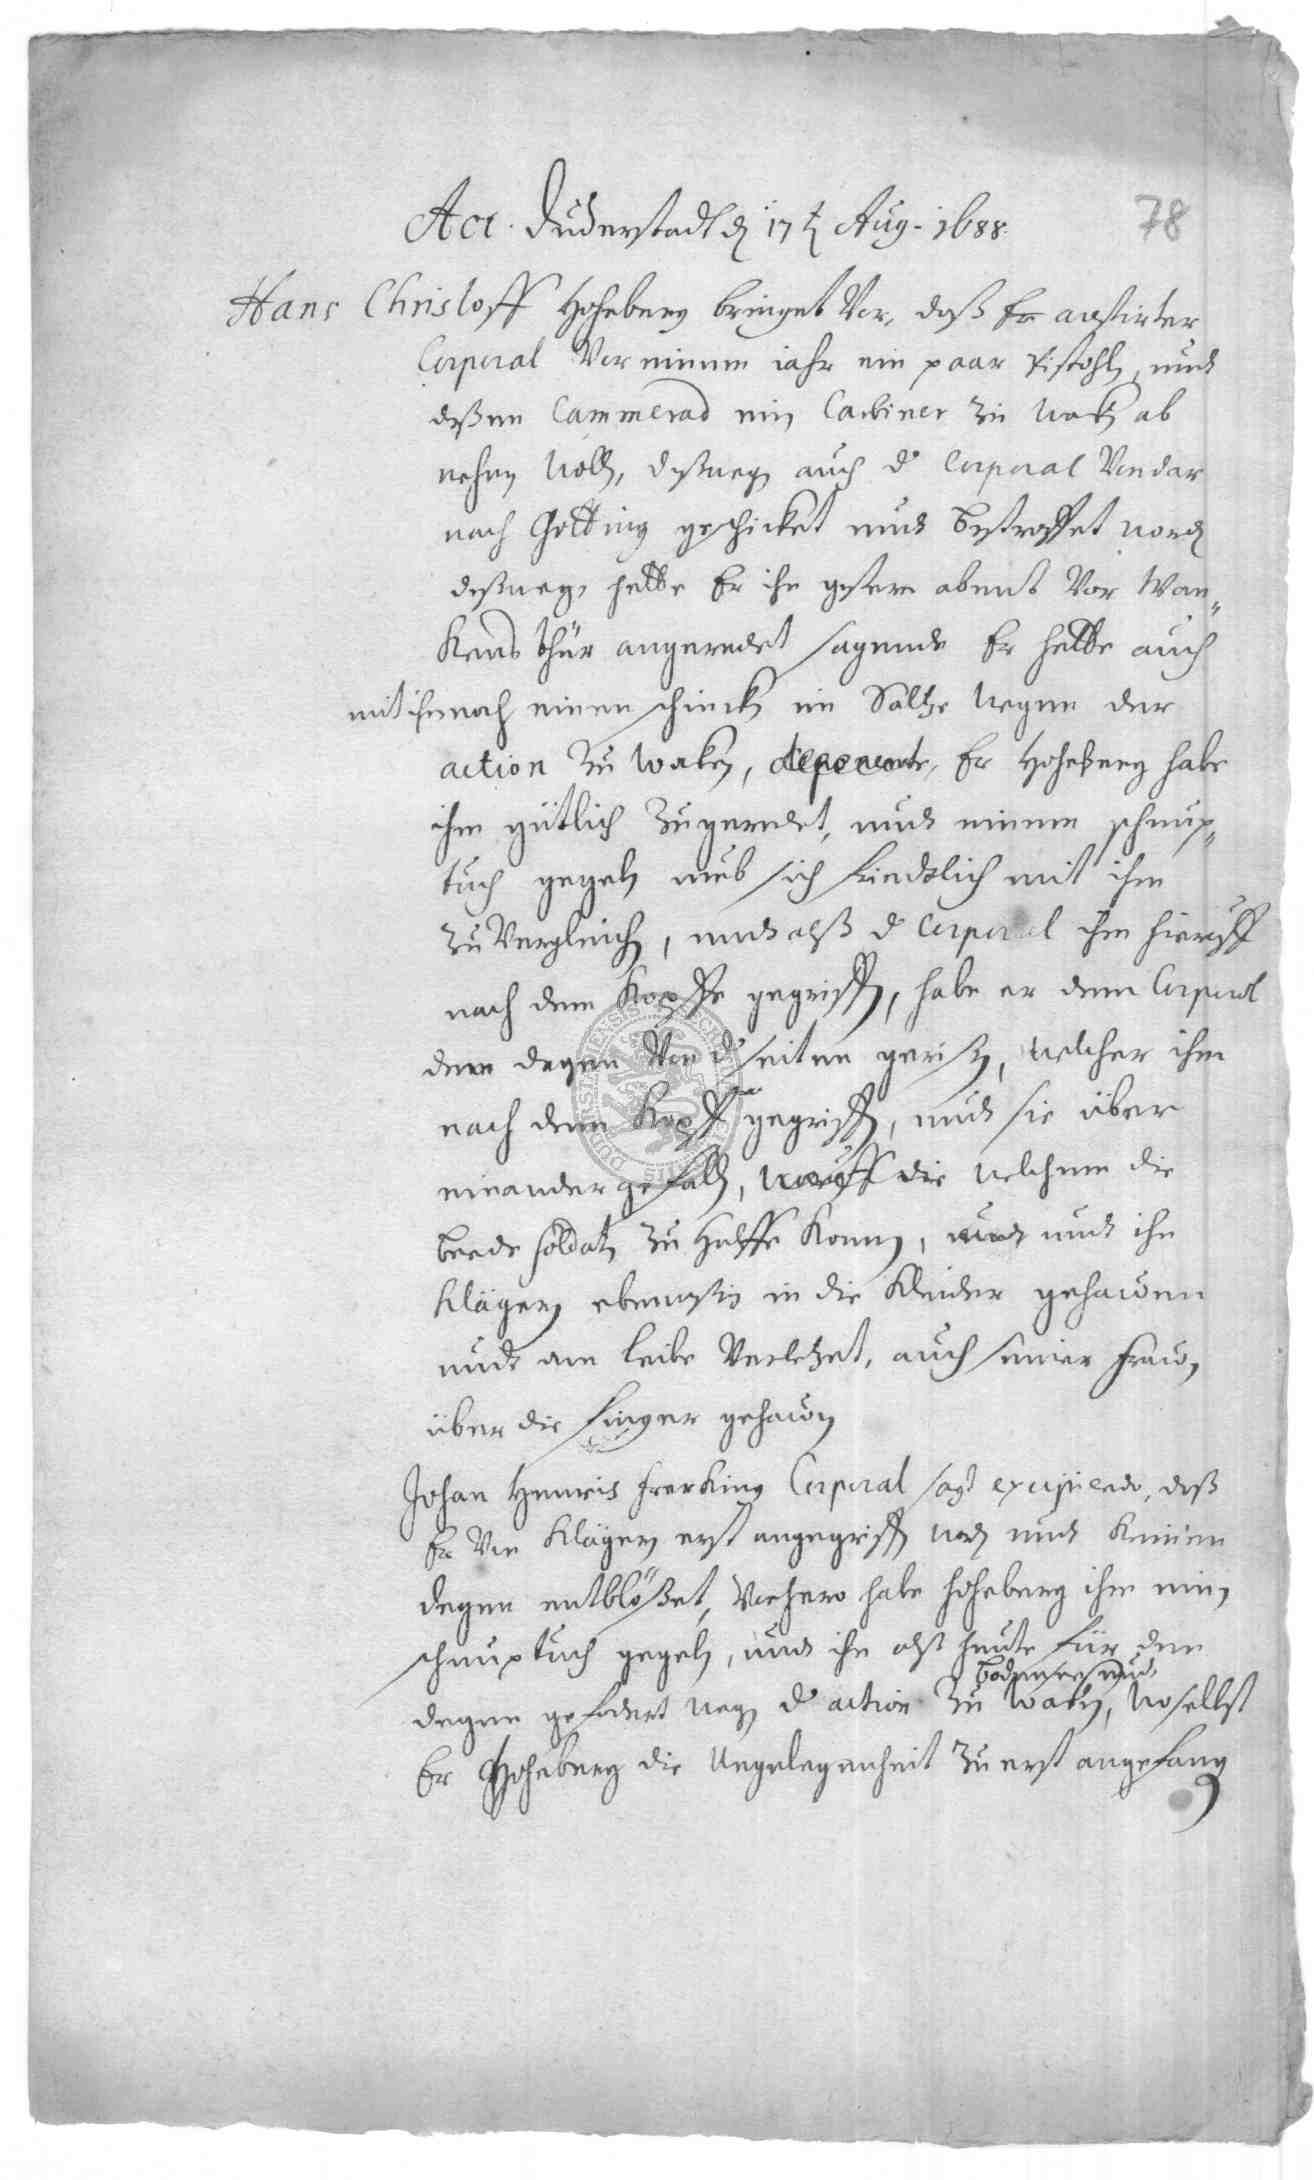 Act. Duderstadt d 17t Aug. 1688.
78
Hans Christoff Hoheberg bringet Vor, daß Er arrestirter
Corporal Vor einem iahr ein paar Pistohlen, undt
deßen Cammerad ein Carbiner zu Waken ab
nehmen wollen, deßwegen auch der Corporal Von dar
nach Götting geschicket undt bestraffet worden
deßwegen hette Er ihn gestern abents Vor Wan„
kens thür angeredet sagende Er hette auch
mit ihm noch einen schincken im Saltze wegen der
action zu Waken, deponente, Er Hoheberg habe
ihm gütlich zugeredet, undt einem schnup„
tuch gegeben umb sich friedtlich mit ihm
zu Vergleichen, undt alß der Corporal ihm hierauff
nach dem Kopffe gegriffen, habe er dem Corporal
den degen Von der seiten gerißen, welcher ihm
nach dem Kopff gegriffen, undt sie über
einander gefallen, worauff die welchem die
beede soldaten zu Hülffe kommen, undt ihn
Klägern in die Kleider gehawen
undt am leibe Verletzet, auch seiner Frawen
über die Finger gehawen
Johan Henrich Frerking Corporal sagt excipiendo, daß
Er Von Klägern erst angegriffen worden undt keinen
degen entblößet, Vorhero habe Hoheberg ihm ein
schnuptuch gegeben, undt ihn alß heute für den
Bodensee undt
degen gefodert wegen der action zu Waken, woselbst
Er Hoheberg die Ungelegenheit zu erst angefangen